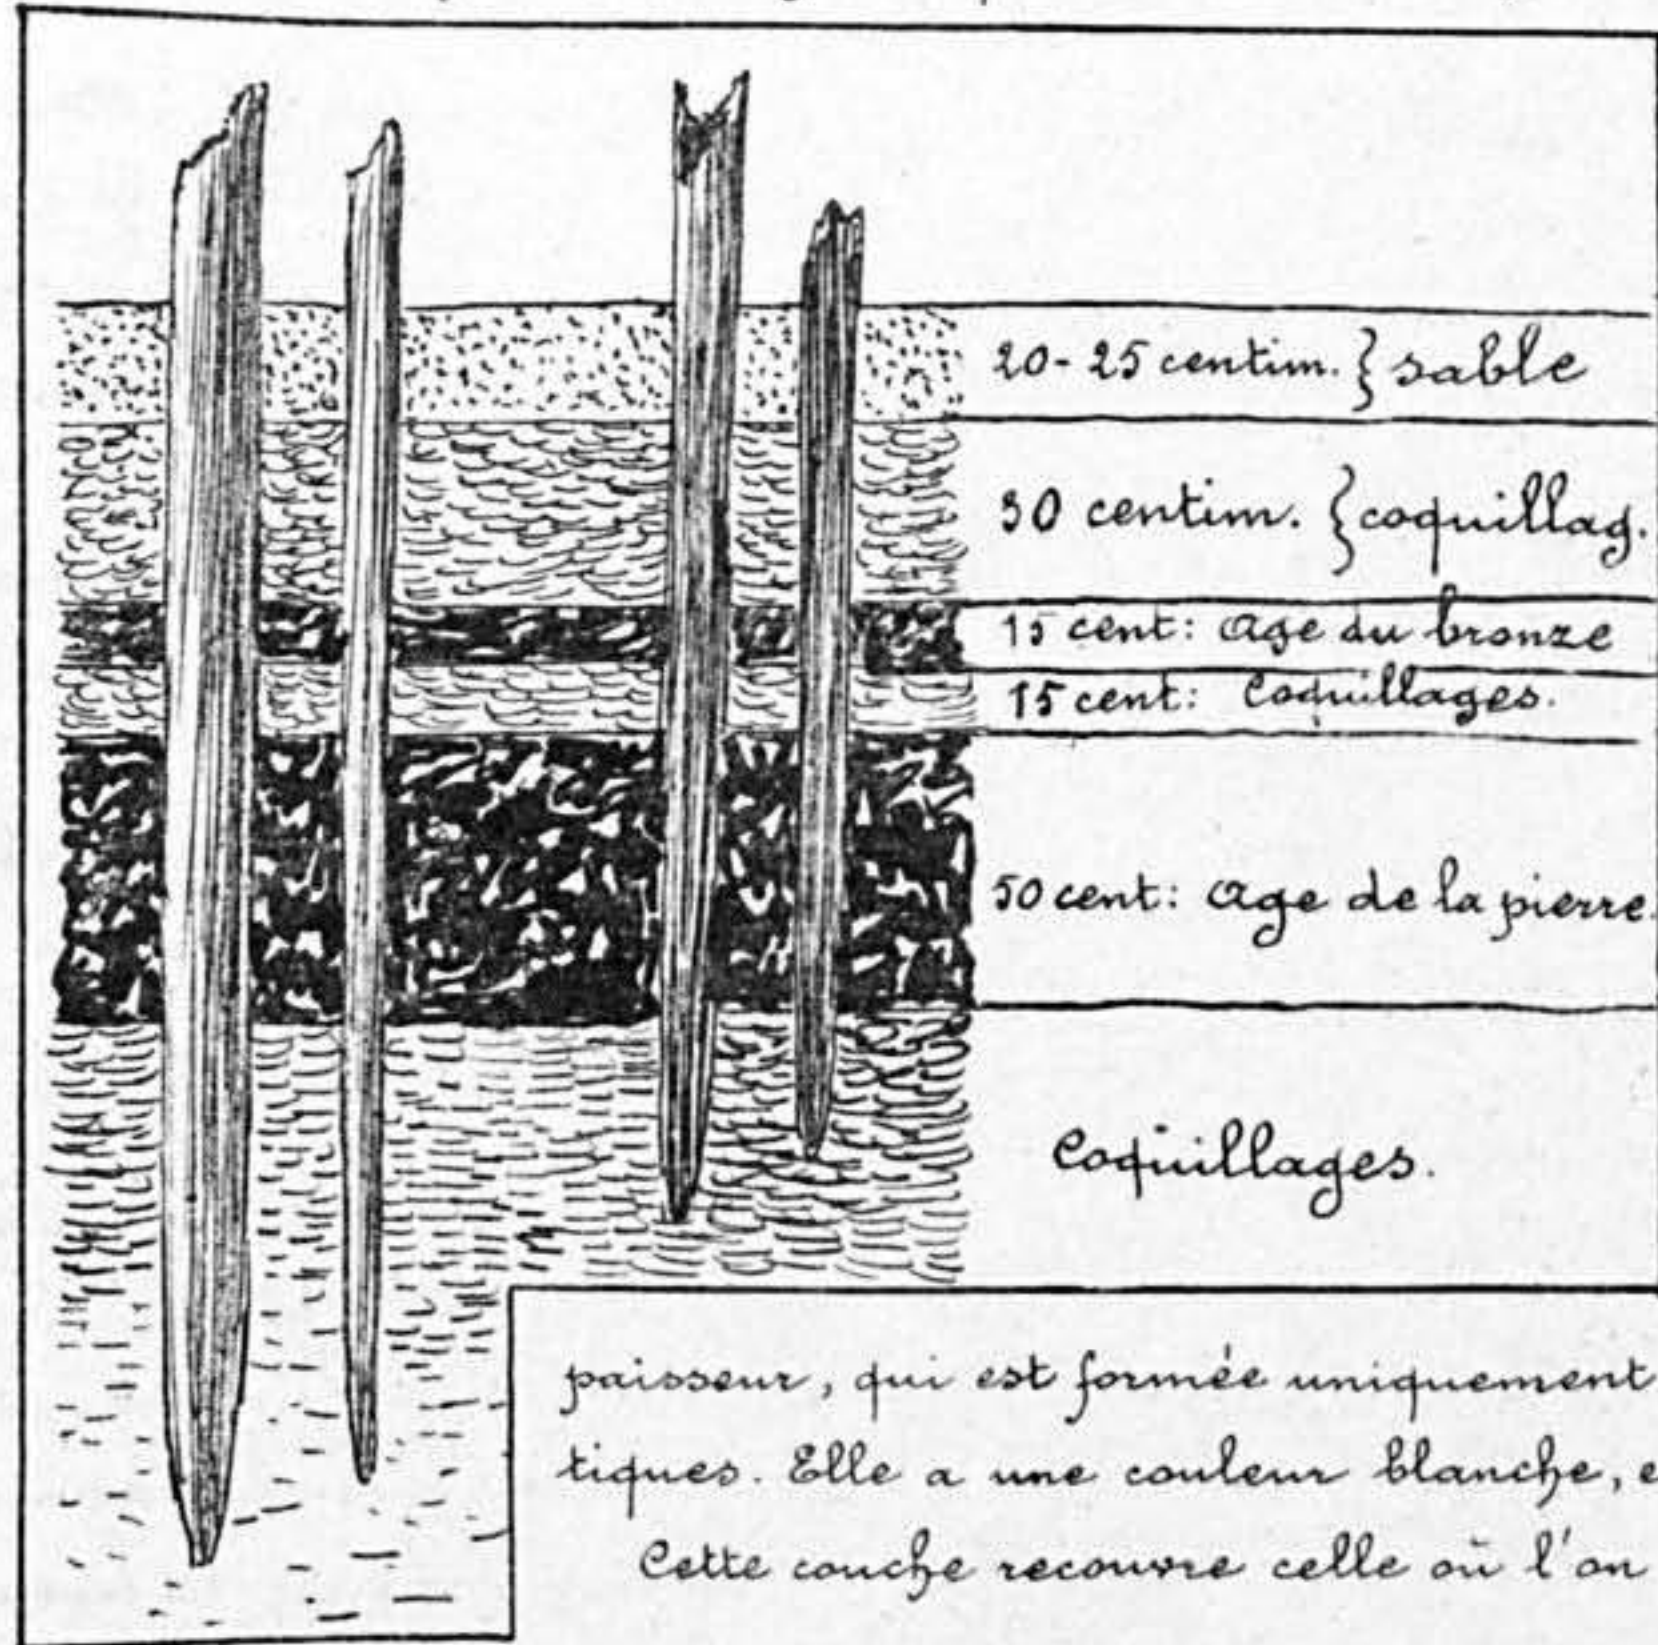 20-25 centim. } sable
30 centim. { coquillag.
15 cent: Age du bronze
15 cent: Coquillages.
50 cent: Age de la pierre.
Coquillages.
paisseur, qui est formée uniquement
tiques. Elle a une couleur blanche, e
Cette couche recouvre celle où l'on